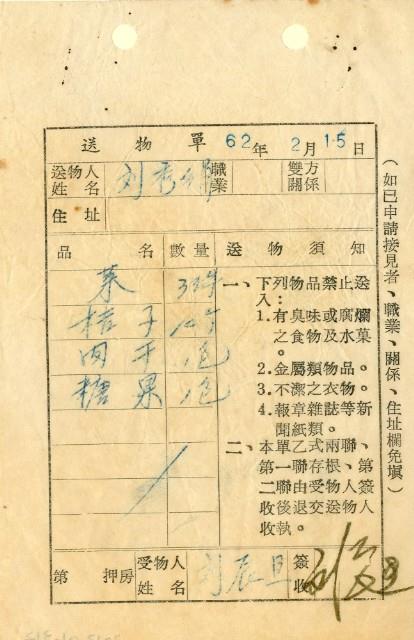 送物單 62年2月15日
送物人姓名 刘秀 職業 雙方關係
住址
品名 數量 送物須知
菜
桔子
肉干 包
糖果 包
一、下列物品禁止送入：
1. 有臭味或腐爛之食物及水菓。
2. 金屬類物品。
3. 不潔之衣物。
4. 報章雜誌等新聞紙類。
二、本單乙式兩聯、第一聯存根、第二聯由受物人簽收後退交送物人收執。
第 押房 受物人姓名 刘辰旦 簽收 刘辰旦
（如已申請接見者、職業、關係、住址欄免填）